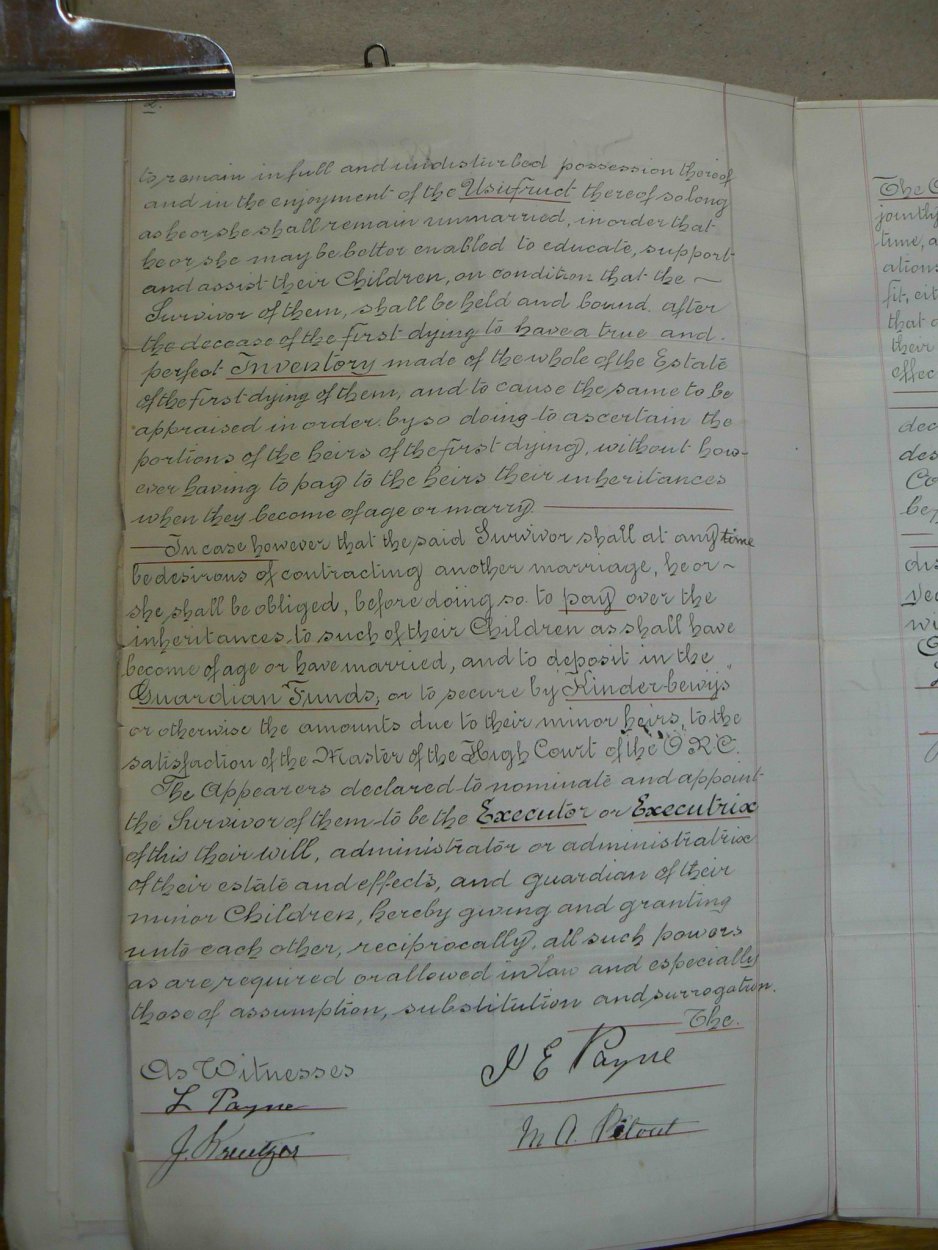 2.
to remain in full and undisturbed possession thereof
and in the enjoyment of the Usufruct thereof so long
as he or she shall remain unmarried, in order that
he or she may be better enabled to educate, support
and assist their Children, on condition that the ~
Survivor of them, shall be held and bound after
the decease of the first dying to have a true and
perfect Inventory made of the whole of the Estate
of the first dying of them, and to cause the same to be
appraised in order by so doing to ascertain the
portions of the heirs of the first dying, without how-
ever having to pay to the heirs their inheritances
when they become of age or marry
In case however that the said Survivor shall at any time
be desirous of contracting another marriage, he or ~
she shall be obliged, before doing so to pay over the
inheritances to such of their Children as shall have
become of age or have married, and to deposit in the
Guardian Funds, or to secure by "Kinderbewys"
or otherwise the amounts due to their minor heirs, to the
satisfaction of the Master of the High Court of the O.R.C.
The Appearers declared to nominate and appoint
the Survivor of them to be the Executor or Executrix
of this their will, administrator or administratrix
of their estate and effects, and guardian of their
minor Children, hereby giving and granting
unto each other, reciprocally, all such powers
as are required or allowed in law and especially
those of assumption, substitution and surrogation.
The.
As Witnesses
L Payne
E Payne
M. A.
The
jointly
time, a
ations
fit, eit
that a
their
effec
dec
des
Co
be
dis
wi